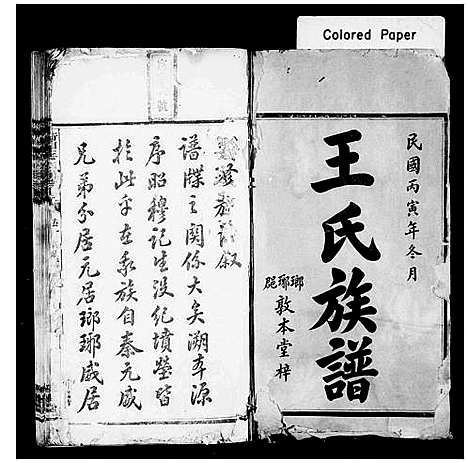 Colored Paper
民國丙寅年冬月
王氏族譜
郡琊瑯
敦本堂梓
號
叙
譜牒之關係大矣溯本源
序昭穆記生没紀墳塋皆
於此乎在我族自秦元威
兄弟分居元居瑯琊威居